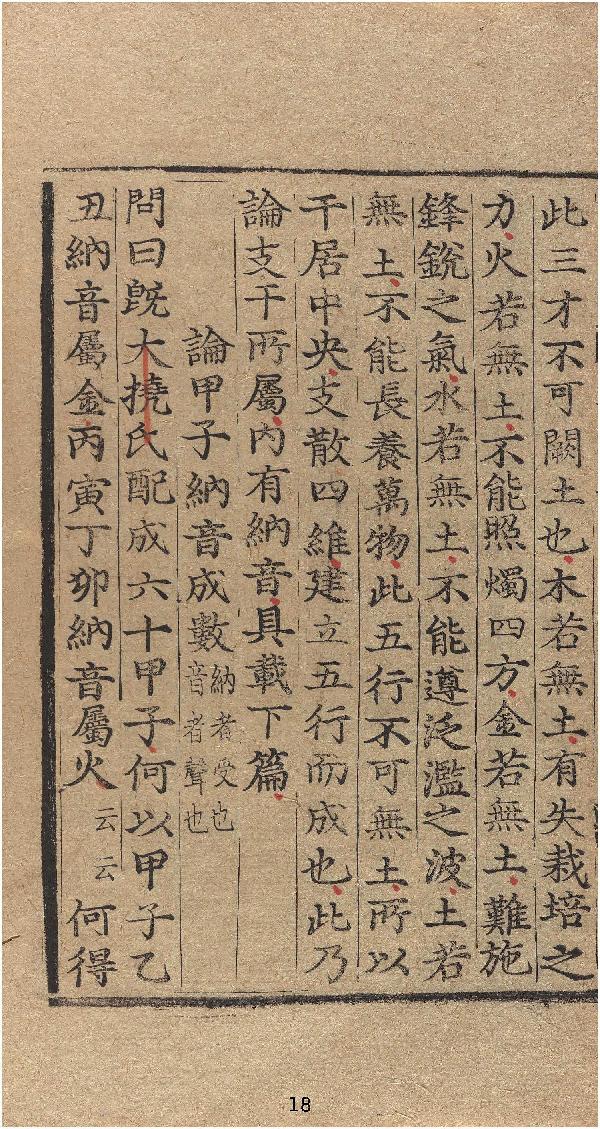 此三才不可闕土也木若無土有失栽培之
力火若無土不能照燭四方金若無土難施
鋒銳之氣水若無土不能遵泛濫之波土若
無土不能長養萬物此五行不可無土所以
干居中央支散四維建立五行而成也此乃
論支干所屬內有納音具載下篇
論甲子納音成數納者受也音者聲也
問曰旣大撓氏配成六十甲子何以甲子乙
丑納音屬金丙寅丁卯納音屬火云云何得
18